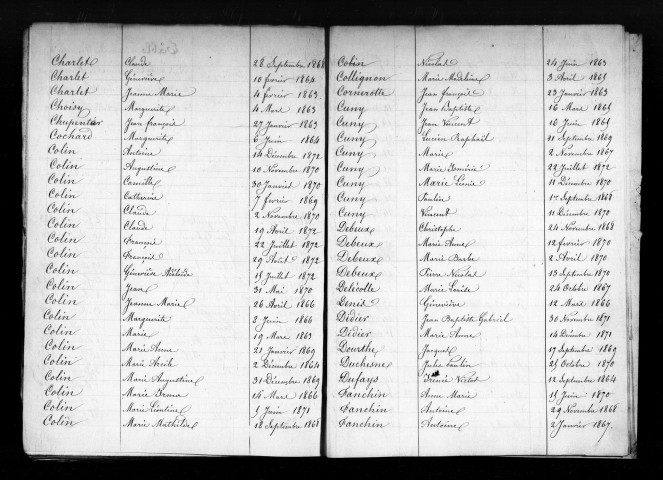 Charlet Claude 28 Septembre 1868
Charlet Géneviève 10 février 1864
Charlet Jeanne Marie 4 février 1863
Choisy Marguerite 4 Mars 1863
Chupentier Jean françois 27 Janvier 1863
Cochard Marguerite 6 Juin 1864
Colin Antoine 14 Décembre 1872
Colin Augustine 10 Novembre 1870
Colin Camille 30 Janvier 1870
Colin Catherine 7 février 1869
Colin Claude 2 Novembre 1870
Colin Claude 19 Avril 1872
Colin François 22 Juillet 1872
Colin François 29 Août 1872
Colin Géneviève Adélaïde 15 Juillet 1872
Colin Jean 31 Mai 1870
Colin Jeanne Marie 26 Avril 1866
Colin Marguerite 2 Juin 1866
Colin Marie 19 Mars 1863
Colin Marie Anne 21 Janvier 1869
Colin Marie 2 Décembre 1864
Colin Marie Augustine 31 Décembre 1869
Colin Marie Irma 14 Mars 1866
Colin Marie 5 Juin 1871
Colin Marie Mathilde 18 Septembre 1868
Colin Nicolas 24 Juin 1863
Collignon Marie Madeleine 3 Avril 1865
Cornerotte Jean françois 23 Janvier 1863
Cuny Jean Baptiste 16 Mars 1865
Cuny Jean Vincent 16 Juin 1865
Cuny Lucien Raphaël 21 Septembre 1869
Cuny Marie 2 Novembre 1867
Cuny Marie 22 Juillet 1872
Cuny Marie 11 Décembre 1870
Cuny Paulin 1er Septembre 1868
Cuny Vincent 11 Décembre 1870
Debeux Christophe 24 Novembre 1868
Debeux Marie Anne 12 février 1870
Debeux Marie Barbe 2 Avril 1870
Debeux Pierre Nicolas 13 Septembre 1870
Delicolle Marie Louise 24 Octobre 1867
Denis Géneviève 12 Mars 1866
Didier Jean Baptiste Gabriel 30 Novembre 1871
Didier Marie Anne 14 Décembre 1871
Dourthe Jacques 17 Septembre 1869
Duchesne Julie Paulin 25 Octobre 1870
Dufays 12 Septembre 1864
Danchin Anne Marie 15 Juin 1870
Danchin Antoine 29 Novembre 1868
Danchin Antoine 2 Janvier 1867